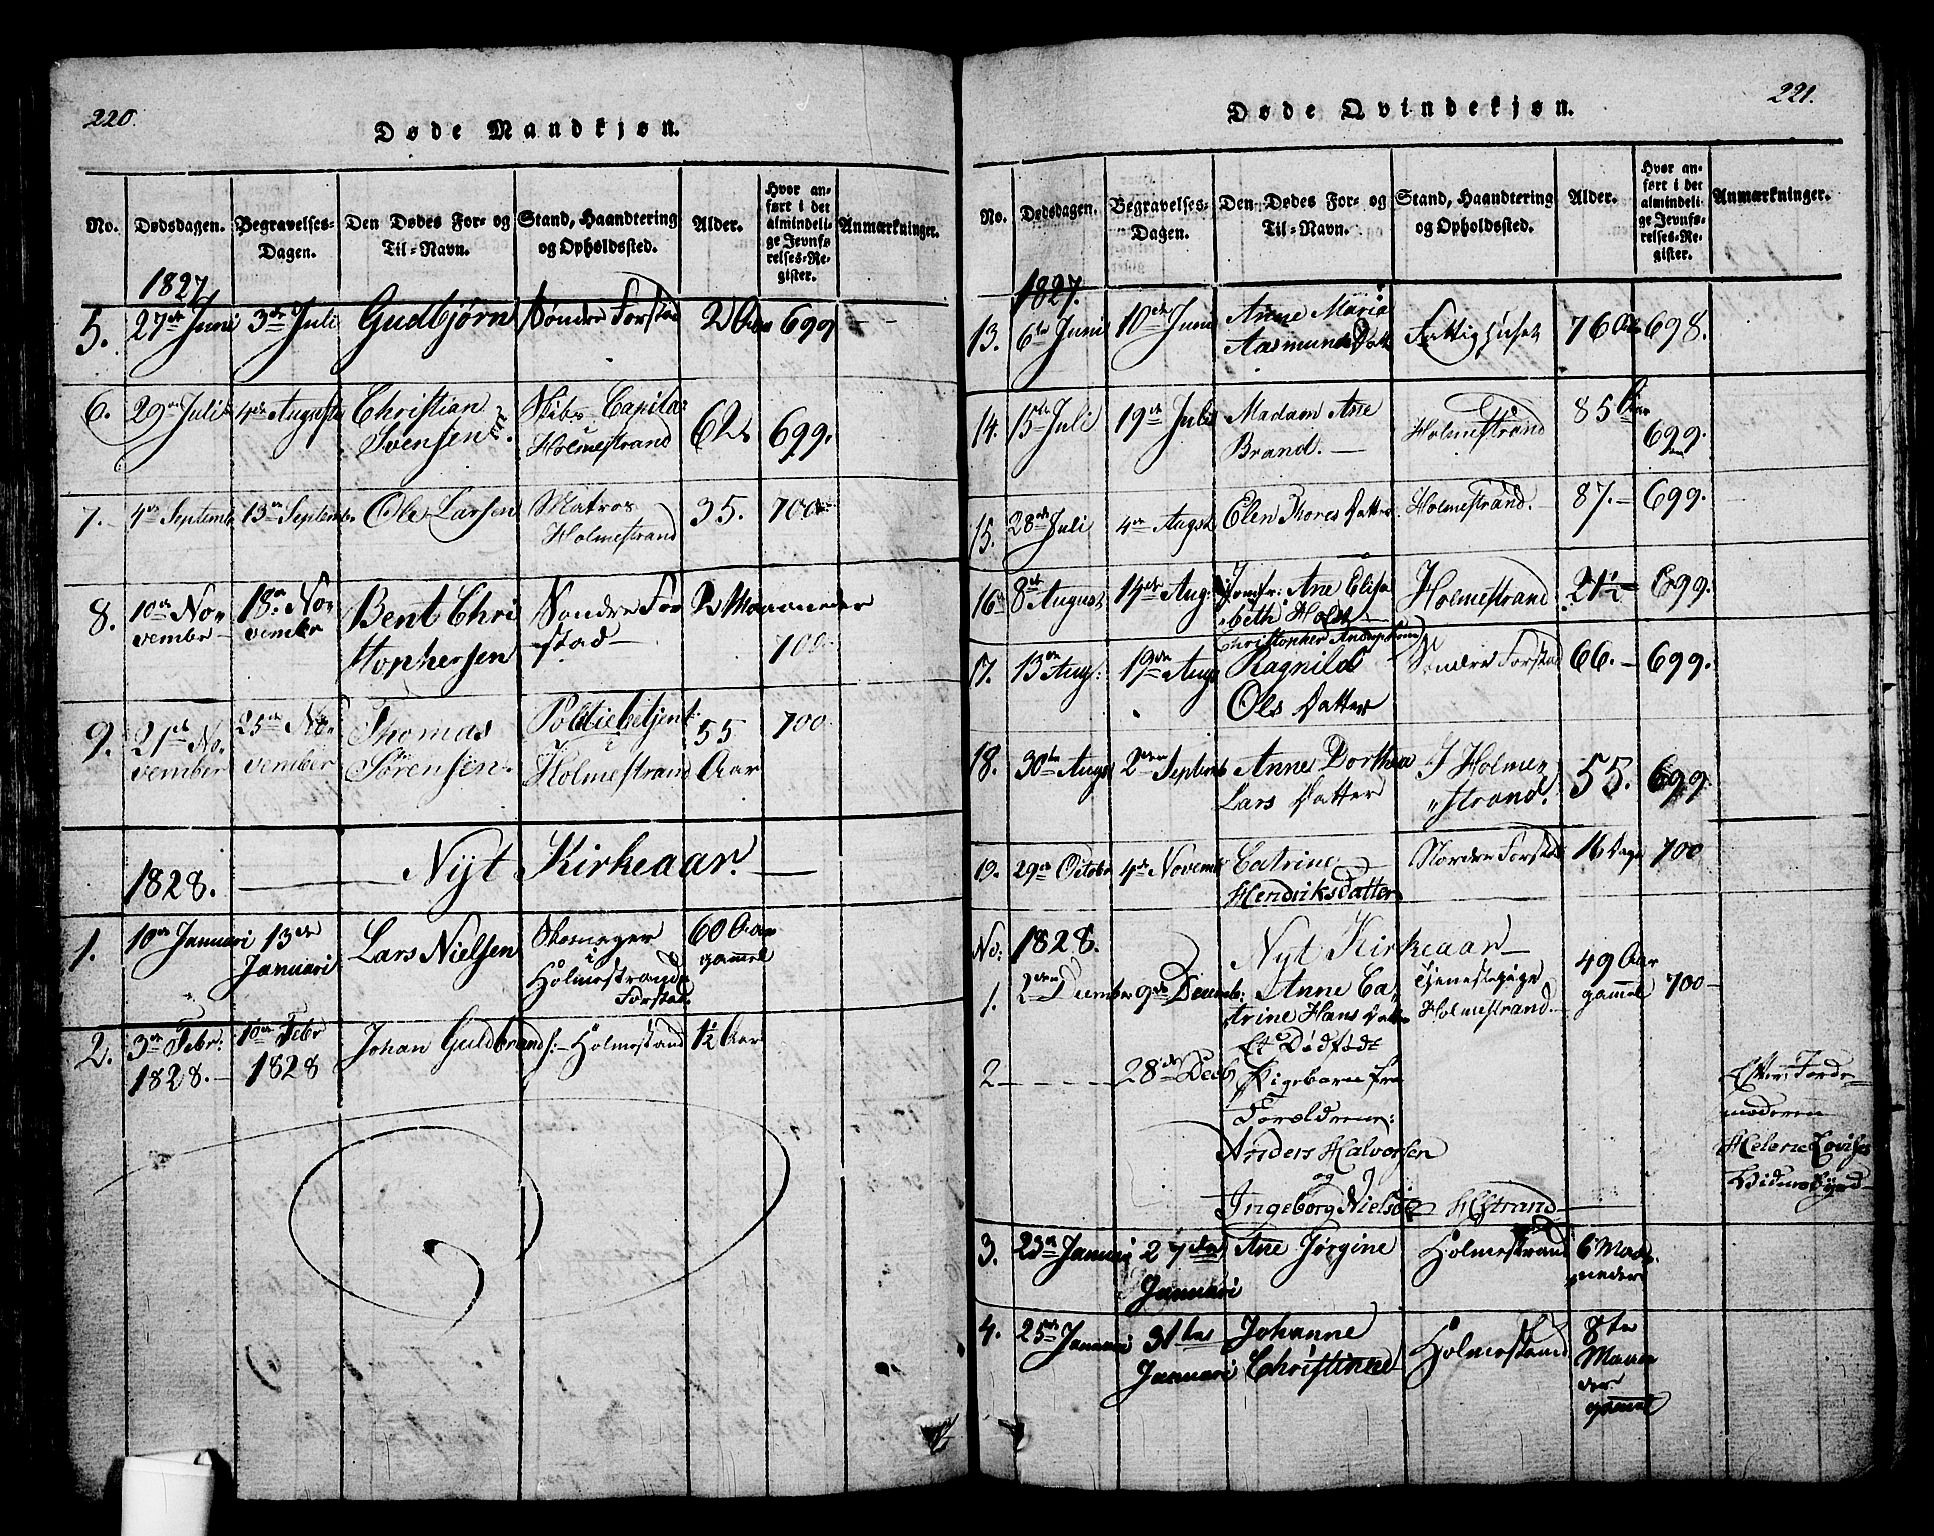 220.
Døde Mandkjøn.
No. Dødsdagen. Begravelses-Dagen. Den Dødes For- og Til-Navn. Stand, Haandtering og Opholdssted. Alder. Hvor anført i det almindelige Jevnførelses-Register. Anmærkninger.
1827
5. 27de Juni 3de Juli Gudbjørn Søndre Forstad 2 Aar 699
6. 29de Juli 4de Augusti Christian Svensen Skibs Capita: Holmestrand 62 699.
7. 4de Septemb 13de Septembr Ole Larsen Matros Holmestrand 35. 700
8. 10de November 18de November Bent Christophersen Søndre Forstad 2 Maaneder 700
9. 21de November 25de November Thomas Sørensen Politiebetjent i Holmestrand 55 Aar 700
1828. Nyt Kirkeaar.
1. 10de Januari 13de Januari Lars Nielsen i Holmestrands Forstad 60 Aar gammel
2. 3de Febr: 1828. 10de Febr 1828 Johan Guldbrands:- Holmestrand 1½ Aar
221.
Døde Qvindekjøn.
No. Dødsdagen. Begravelses-Dagen. Den Dødes For- og Til-Navn. Stand, Haandtering og Opholdssted. Alder. Hvor anført i det almindelige Jevnførelses-Register. Anmærkninger.
1827.
13. 6te Juni 10de Juni Anne Maria Aasmunds Datt Fattighuset 76 Aar 698.
14. 15de Juli 19de Juli Madam Ane Brand. Holmestrand 85 Aar 699.
15. 28de Juli 4de Augst Elen Thores Datter Holmestrand. 87. 699.
16 8de August 14de Aug: Jomfr: Ane Elisabeth Holst Holmestrand 21½ 699.
17. 13de Aug: 19de Aug Ragnild Ols Datter Søndre Forstad 66. 699.
18. 30te Augst 2den Septemb Anne Dorthea Lars Datter I Holmestrand. 55. 699.
19. 29de Octobr 4de Novemb Catrine Hendriksdatter Nordre Forstad 16 Dage 700
No: 1828. Nyt Kirkeaar
1. 2den December 9de Decemb: Anne Catrine Hans Datter Tjenestepige Holmestrand. 49 Aar gammel 700
2 28de Decb Et Dødfødt Pigebarn fra Forældrene: Anders Halvorsen og Ingeborg Nielsd HStrand Efter Jordemoderen Helene Lovise
3. 23de Januari 27de Januari Ane Jørgine Holmestrand 6 Maaneder
4. 25de Januari 31te Januari Johanne Christinne Holmestrand 8te Maaneder gammel